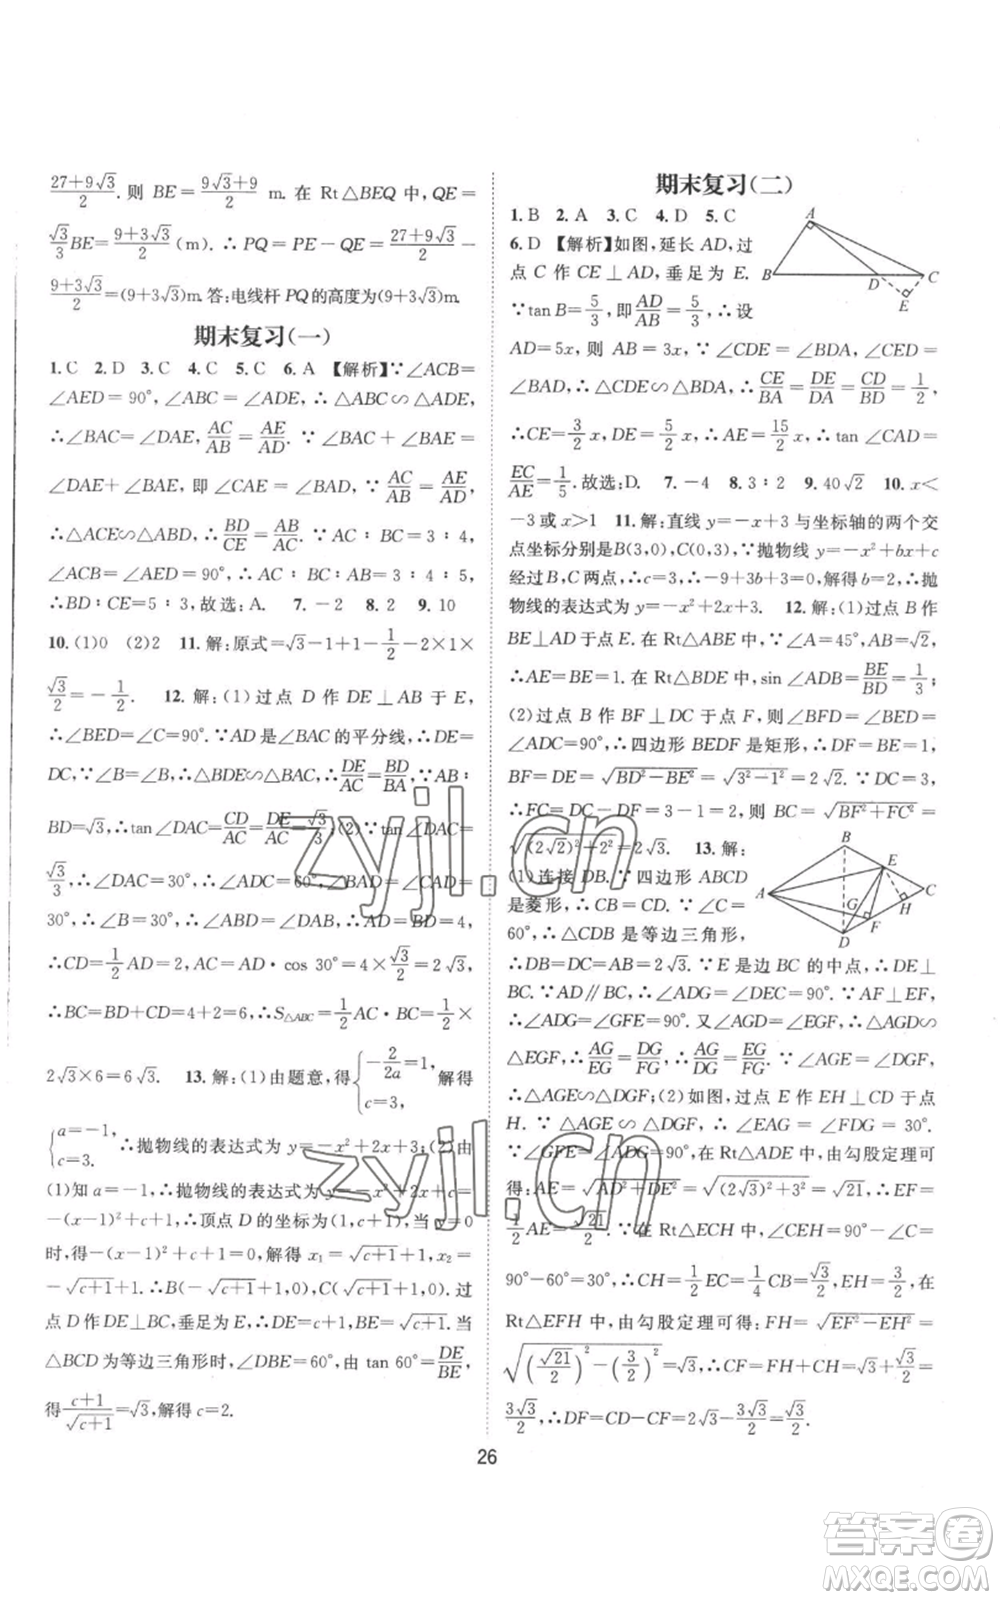 27+9√3/2.则 BE=9√3+9/2 m.在 Rt△BEQ 中,QE=
√3/3BE=9+3√3/2(m).∴PQ=PE-QE=27+9√3/2-
9+3√3/2=(9+3√3)m.答:电线杆PQ的高度为(9+3√3)m.
期末复习(一)
1.C 2.D 3.C 4.C 5.C 6.A 【解析】∵∠ACB=
∠AED=90°,∠ABC=∠ADE,∴△ABC∽△ADE,
∴∠BAC=∠DAE,AC/AB=AE/AD.∵∠BAC+∠BAE=
∠DAE+∠BAE,即∠CAE=∠BAD,∵AC/AB=AE/AD,
∴△ACE∽△ABD,∴BD/CE=AB/AC.∵AC∶BC=3∶4,
∠ACB=∠AED=90°,∴AC∶BC∶AB=3∶4∶5,
∴BD∶CE=5∶3,故选:A. 7.-2 8.2 9.10
10.(1)0 (2)2 11.解:原式=√3-1+1-1/2-2×1×
√3/2=-1/2. 12.解:(1)过点 D 作 DE⊥AB 于 E,
∴∠BED=∠C=90°.∵AD是∠BAC的平分线,∴DE=
DC,∵∠B=∠B,∴△BDE∽△BAC,∴DE/AC=BD/BA,∵AB=
BD=√3,∴tan∠DAC=CD/AC=DE/AC=√3/3;(2)∵tan∠DAC=
√3/3,∴∠DAC=30°,∴∠DAC=60°,∠BAD=∠CAD=
30°,∴∠B=30°,∴∠ABD=∠DAB,∴AD=BD=4,
∴CD=1/2AD=2,AC=AD·cos 30°=4×√3/2=2√3,
∴BC=BD+CD=4+2=6,∴S△ABC=1/2AC·BC=1/2×
2√3×6=6√3. 13.解:(1)由题意,得{-2/2a=1,c=3,解得
{a=-1,c=3.∴抛物线的表达式为 y=-x²+2x+3;(2)由
(1)知a=-1,∴抛物线的表达式为y=-x²+2x+c=
-(x-1)²+c+1,∴顶点 D 的坐标为(1,c+1).当y=0
时,得-(x-1)²+c+1=0,解得 x₁=√c+1+1,x₂=
-√c+1+1,∴B(-√c+1+1,0),C(√c+1+1,0).过
点D作DE⊥BC,垂足为E,∴DE=c+1,BE=√c+1.当
△BCD为等边三角形时,∠DBE=60°,由 tan 60°=DE/BE,
得c+1/√c+1=√3,解得c=2.
期末复习(二)
1.B 2.A 3.C 4.D 5.C
6.D 【解析】如图,延长 AD,过
点 C 作 CE⊥AD,垂足为 E.
∵tan B=5/3,即AD/AB=5/3,∴设
AD=5x,则 AB=3x.∵∠CDE=∠BDA,∠CED=
∠BAD,∴△CDE∽△BDA,∴CE/BA=DE/DA=CD/BD=1/2,
∴CE=3/2x,DE=5/2x,∴AE=15/2x,∴tan∠CAD=
EC/AE=1/5.故选:D. 7.-4 8.3∶2 9.40√2 10.x<
-3或x>1 11.解:直线 y=-x+3 与坐标轴的两个交
点坐标分别是B(3,0),C(0,3),∵抛物线 y=-x²+bx+c
经过B,C两点,∴c=3,-9+3b+3=0,解得b=2,∴抛
物线的表达式为y=-x²+2x+3. 12.解:(1)过点B作
BE⊥AD于点E.在Rt△ABE中,∵∠A=45°,AB=√2,
∴AE=BE=1.在Rt△BDE中,sin∠ADB=BE/BD=1/3;
(2)过点 B 作 BF⊥DC 于点 F,则∠BFD=∠BED=
∠ADC=90°,∴四边形 BEDF 是矩形,∴DF=BE=1,
BF=DE=√BD²-BE²=√3²-1²=2√2.∵CD=AB+2,
∴FC=DC-DF=3-1=2,则 BC=√BF²+FC²=
√(2√2)²+2²=2√3. 13.解:
(1)连接 DB.∵四边形 ABCD
是菱形,∴CB=CD.∵∠C=
60°,∴△CDB是等边三角形,
∴DB=DC=2√3.∵E是边BC的中点,∴DE⊥
BC.∵AD∥BC,∴∠ADG=∠DEC=90°.∵AF⊥EF,
∴∠ADG=∠GFE=90°.又∠AGD=∠EGF,∴△AGD∽
△EGF,∴AG/EG=DG/FG,∴AG/DG=EG/FG.∵∠AGE=∠DGF,
∴△AGE∽△DGF;(2)如图,过点 E 作 EH⊥CD于点
H.∵△AGE∽△DGF,∴∠EAG=∠GDF=30°.
∵∠GFE=∠ADG=90°,∴EF=1/2AE.由勾股定理可
得:AE=√AD²+DE²=√(2√3)²+3²=√21,∴EF=
1/2AE=√21/2.∵在Rt△ECH 中,∠CEH=90°-∠C=
90°-60°=30°,∴CH=1/2EC=1/4CB=√3/2,EH=3/2,在
Rt△EFH 中,由勾股定理可得:FH=√EF²-EH²=
√(√21/2)²-(3/2)²=√3.∴CF=FH+CH=√3+√3/2=
3√3/2,∴DF=CD-CF=2√3-3√3/2=√3/2.
A
B
D
C
E
B
A
E
C
G
H
F
D
zyjl.cn
zyjl.cn
26
答案卷
MXQE.COM